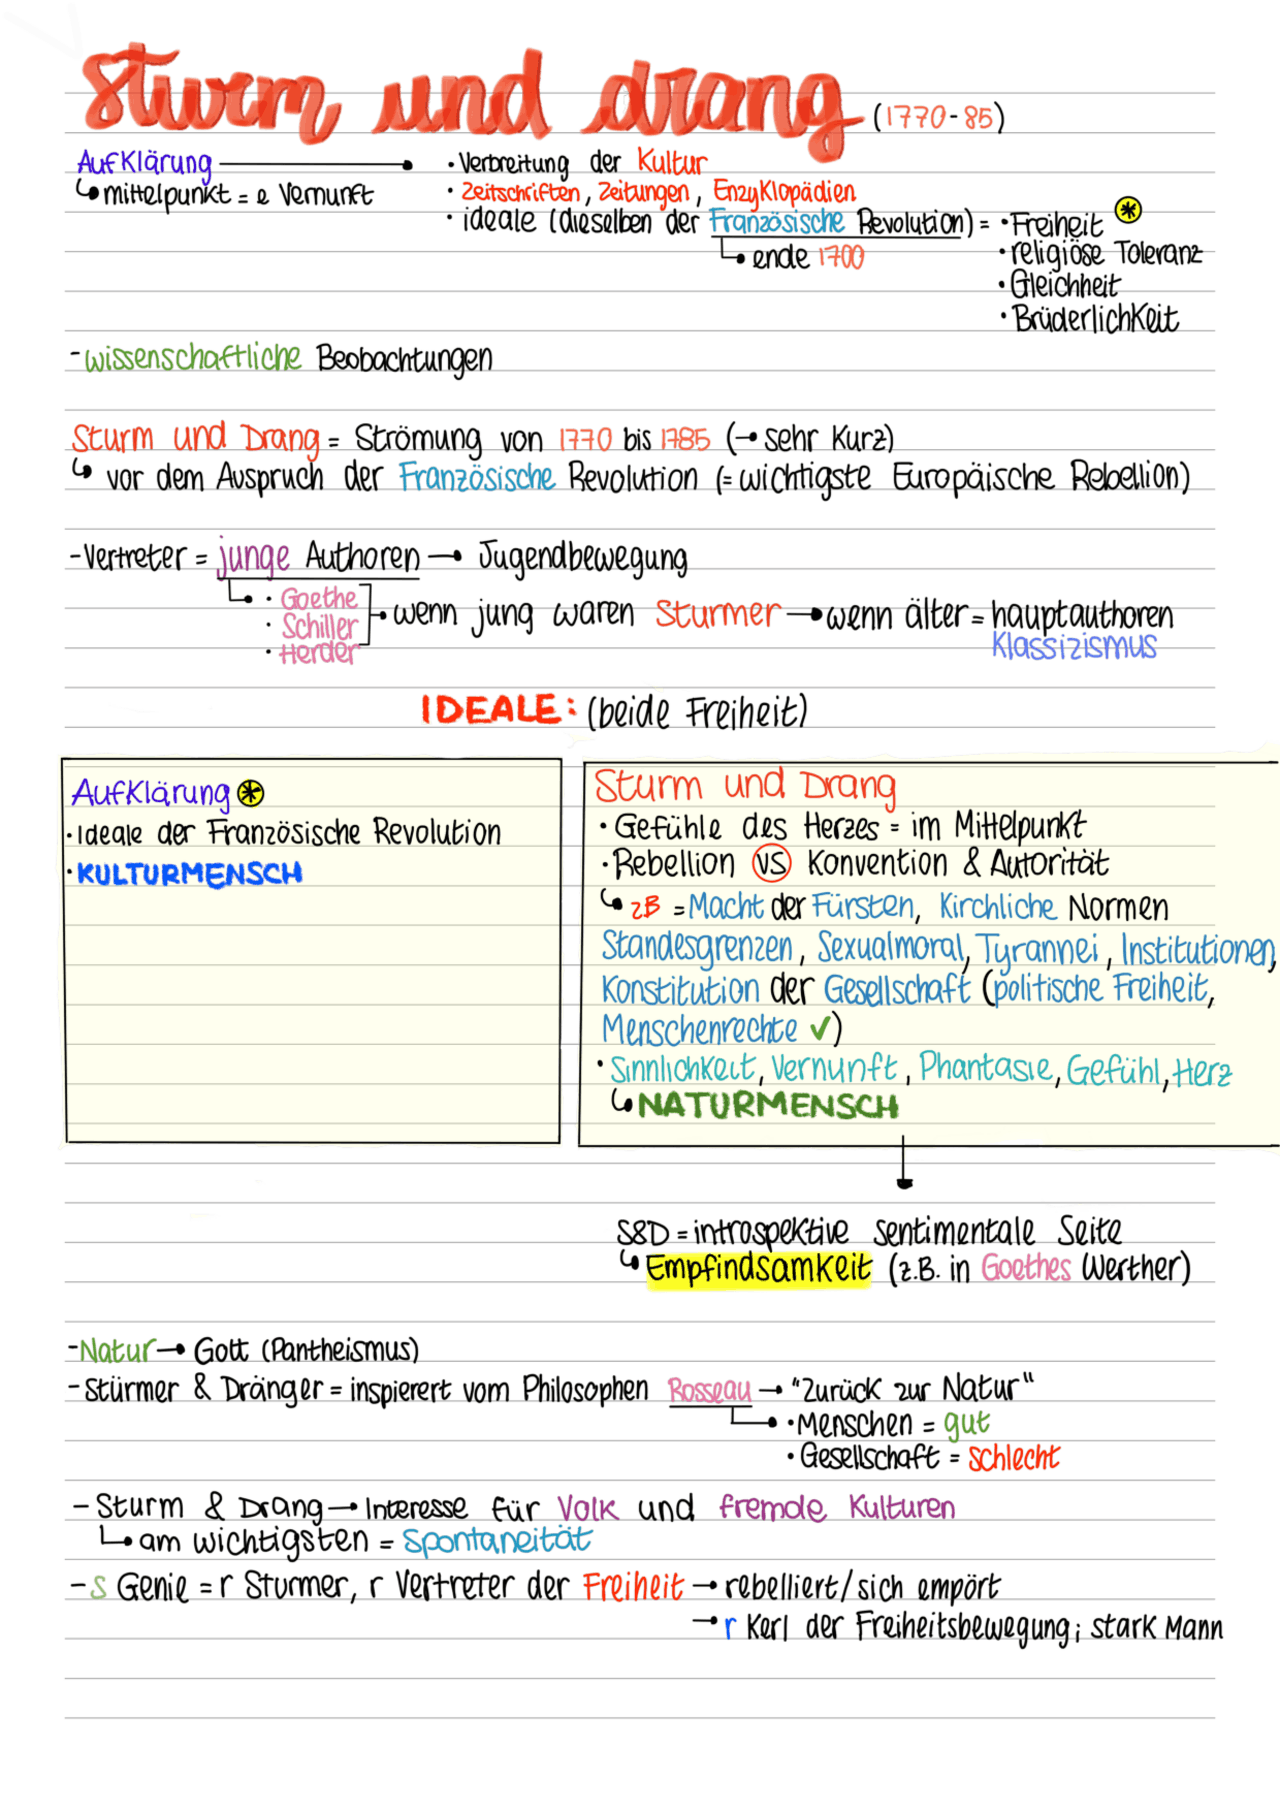 Sturm und drang (1770-85)
AufKlärung → • Verbreitung der Kultur
↳ mittelpunkt = e Vernunft • Zeitschriften, Zeitungen, EnzyKlopädien
• ideale (dieselben der Französische Revolution) = • Freiheit *
↳ ende 1700 • religiöse Toleranz
• Gleichheit
• BrüderlichKeit
- wissenschaftliche Beobachtungen
Sturm und Drang = Strömung von 1770 bis 1785 (→ sehr Kurz)
↳ vor dem Auspruch der Französische Revolution (= wichtigste Europäische Rebellion)
- Vertreter = junge Authoren → Jugendbewegung
↳ • Goethe
• Schiller → wenn jung waren Sturmer → wenn älter = hauptauthoren
• Herder Klassizismus
IDEALE: (beide Freiheit)
AufKlärung *
• Ideale der Französische Revolution
• KULTURMENSCH
Sturm und Drang
• Gefühle des Herzes = im Mittelpunkt
• Rebellion VS Konvention & Autorität
↳ zB = Macht der Fürsten, Kirchliche Normen
Standesgrenzen, Sexualmoral, Tyrannei, Institutionen,
Konstitution der Gesellschaft (politische Freiheit,
Menschenrechte ✓)
• SinnlichKeit, Vernunft, Phantasie, Gefühl, Herz
↳ NATURMENSCH
S&D = introspektive sentimentale Seite
↳ EmpfindsamKeit (z.B. in Goethes Werther)
- Natur → Gott (Pantheismus)
- Stürmer & Dränger = inspierert vom Philosophen Rosseau → "Zurück zur Natur"
↳ • Menschen = gut
• Gesellschaft = schlecht
- Sturm & Drang → Interesse für Volk und fremde Kulturen
↳ am wichtigsten = Spontaneität
- s Genie = r Sturmer, r Vertreter der Freiheit → rebelliert/sich empört
→ r Kerl der Freiheitsbewegung; stark Mann